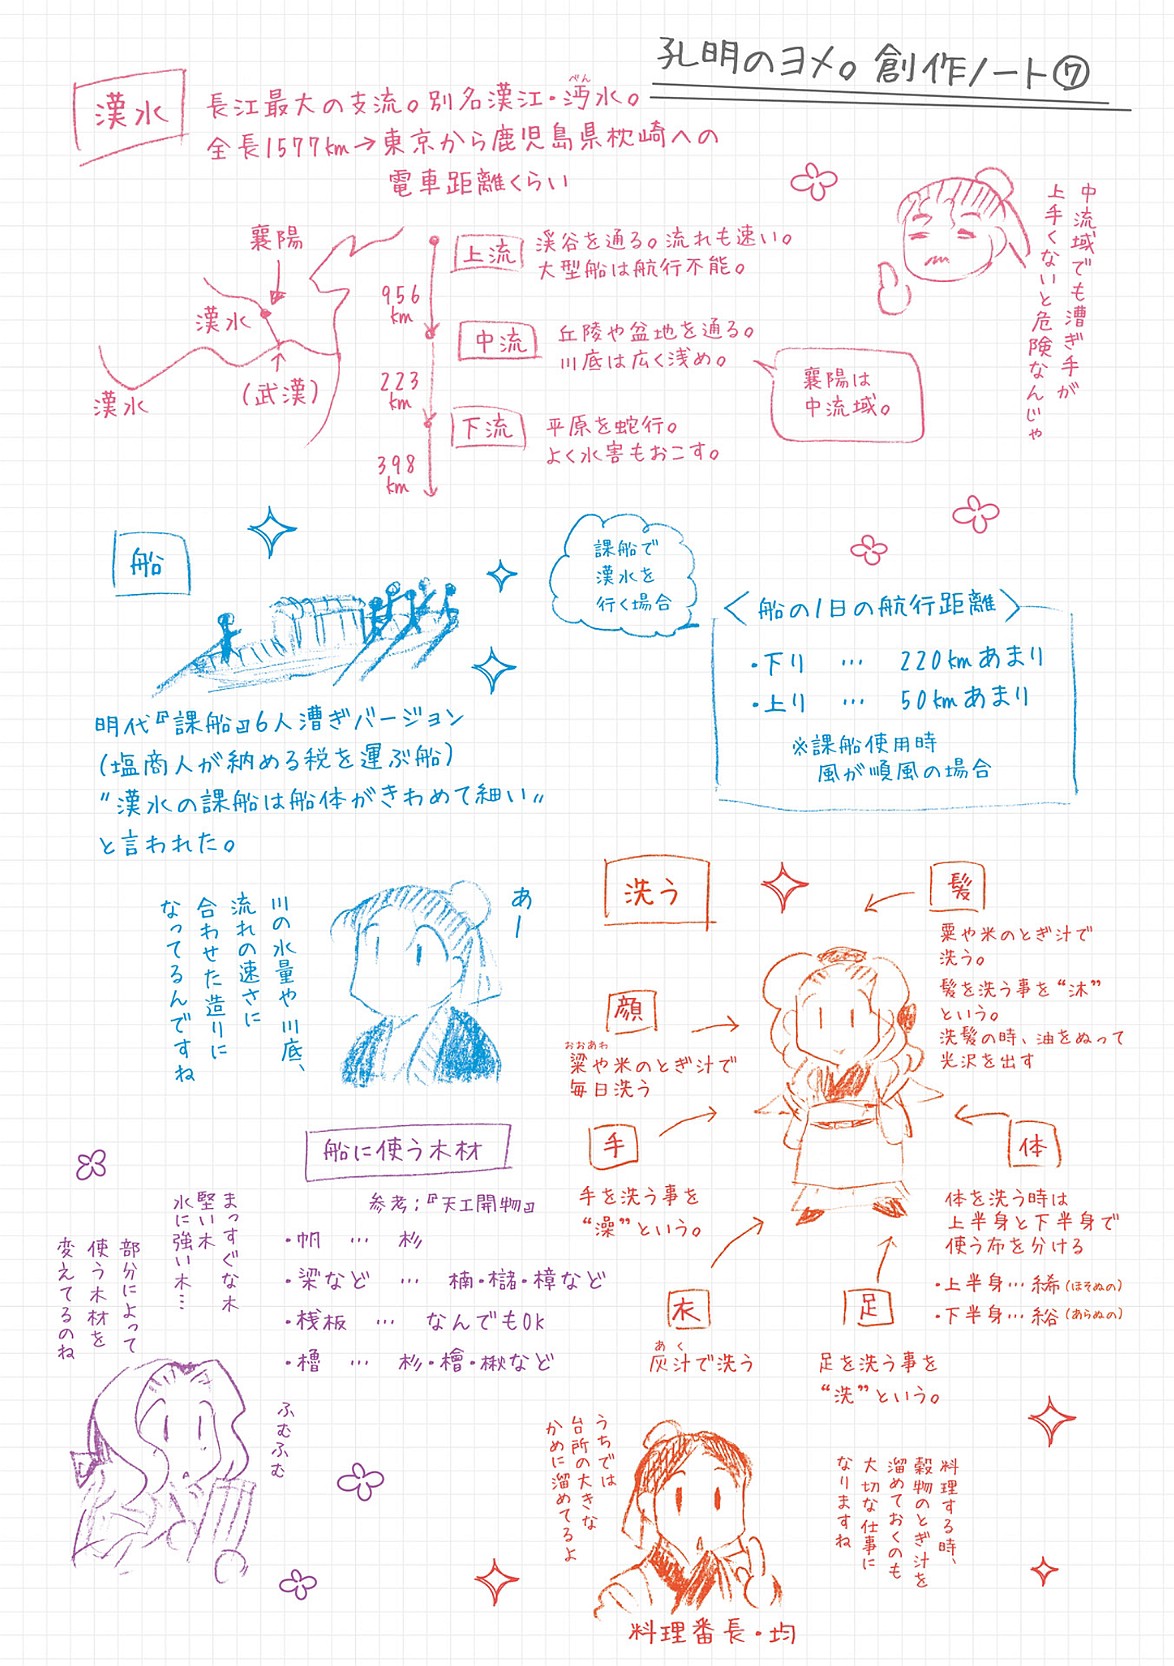 孔明のヨメ。創作ノート⑦
漢水
長江最大の支流。別名漢江・沔水。
べん
全長1577km→東京から鹿児島県枕崎への
電車距離くらい
襄陽
漢水
漢水
(武漢)
956
km
223
km
398
km
上流
渓谷を通る。流れも速い。
大型船は航行不能。
中流
丘陵や盆地を通る。
川底は広く浅め。
下流
平原を蛇行。
よく水害もおこす。
襄陽は
中流域。
中流域でも漕ぎ手が
上手くないと危険なんじゃ
船
明代『課船』6人漕ぎバージョン
(塩商人が納める税を運ぶ船)
〝漢水の課船は船体がきわめて細い〟
と言われた。
課船で
漢水を
行く場合
〈船の1日の航行距離〉
・下り … 220kmあまり
・上り … 50kmあまり
※課船使用時
風が順風の場合
あー
川の水量や川底、
流れの速さに
合わせた造りに
なってるんですね
洗う
髪
粟や米のとぎ汁で
洗う。
髪を洗う事を“沐”
という。
洗髪の時、油をぬって
光沢を出す
顔
おおあわ
粱や米のとぎ汁で
毎日洗う
手
手を洗う事を
“澡”という。
体
体を洗う時は
上半身と下半身で
使う布を分ける
・上半身…絺(ほそぬの)
・下半身…綌(あらぬの)
衣
あく
灰汁で洗う
足
足を洗う事を
“洗”という。
船に使う木材
参考;『天工開物』
・帆 … 杉
・梁など … 楠・櫧・樟など
・桟板 … なんでもOK
・櫓 … 杉・檜・楸など
まっすぐな木
堅い木
水に強い木…
部分によって
使う木材を
変えてるのね
ふむふむ
うちでは
台所の大きな
かめに溜めてるよ
料理する時、
穀物のとぎ汁を
溜めておくのも
大切な仕事に
なりますね
料理番長・均